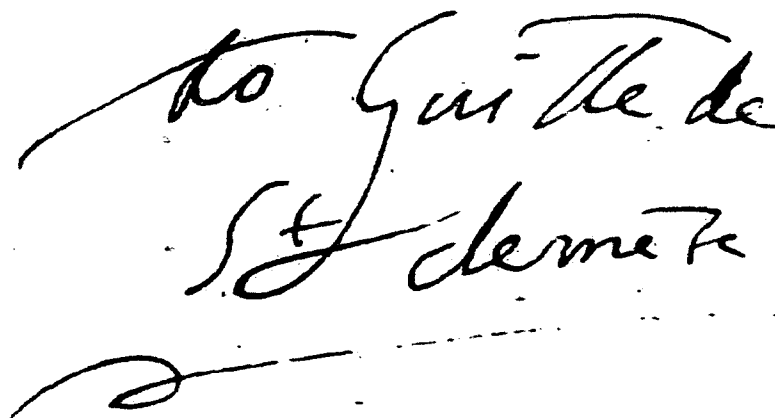 to Guille de
St clemete